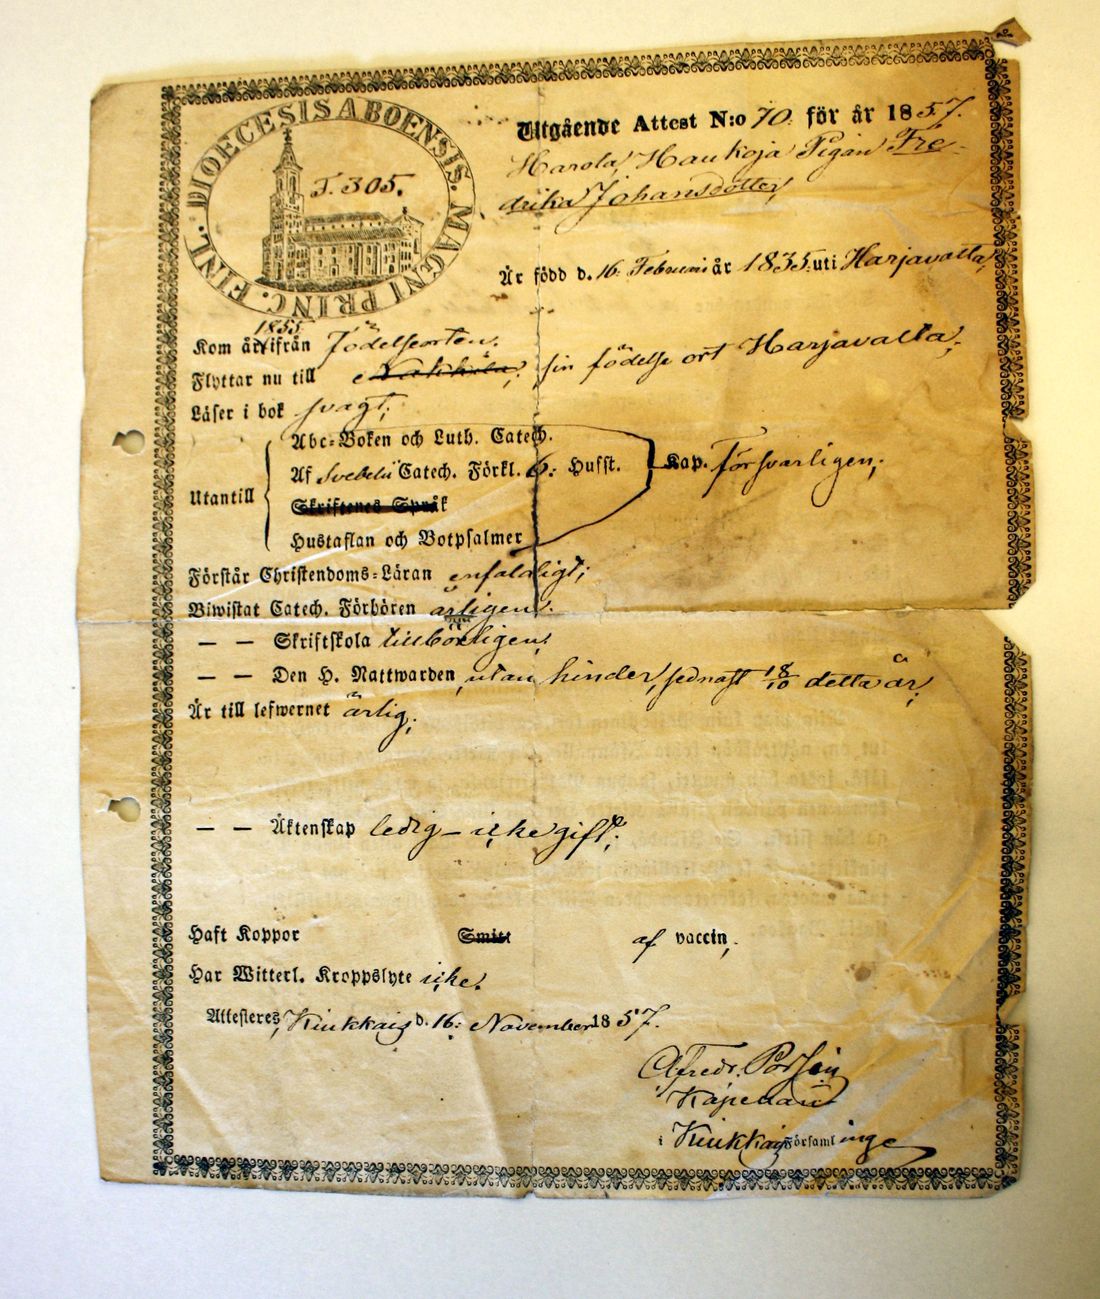 DIOECESIS ABOENSIS. MAGNI PRINC. FINL.
T. 305.
Utgående Attest N:o 70. för år 1857.
Harola, Haukoja Pigan Fre-
drika Johansdotter,
Är född d. 16. Februari år 1835. uti Harjavalta,
1855
Kom år ifrån Födelseorten.
Flyttar nu till Nakkila, sin födelse ort Harjavalta,
Läser i bok svagt;
Utantill
Abc-Boken och Luth. Catech.
Af Svebelii Catech. Förkl. 6: Husst. Kap. Försvarligen;
Skriftenes Språk
Hustaflan och Botpsalmer
Förstår Christendoms-Läran enfaldigt;
Biwistat Catech. Förhören årligen.
— — Skriftskola tillbörligen,
— — Den H. Nattwarden, utan hinder, sednast 18/10 detta år,
Är till lefwernet ärlig,
— — Äktenskap ledig – icke gift;
Haft Koppor Smitt af vaccin,
Har Witterl. Kroppslyte icke.
Attesteres, Kiukkais d. 16: November 1857.
Alfredr. Porsen
Kapellan
i Kiukkais Församlinge